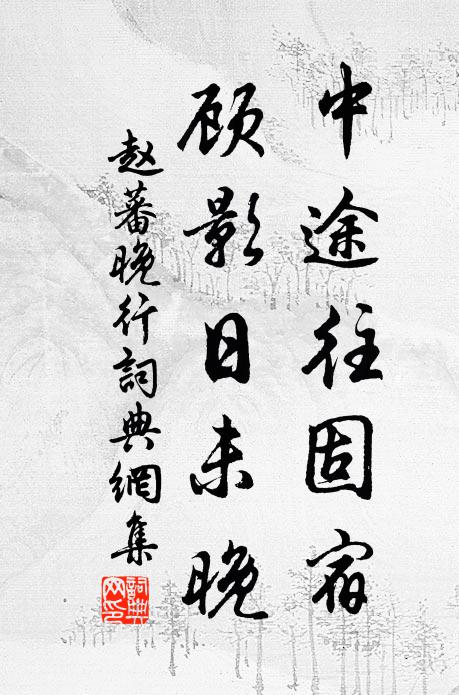 中途往固宿
顾影日未晚
赵蕃晚行词典網集
詞典網印